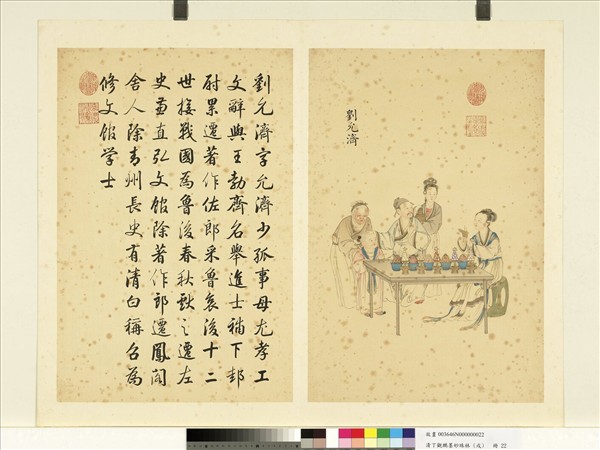 劉允濟字允濟少孤事母尤孝工
文辭與王勃齊名舉進士補下邽
尉累遷著作佐郎采魯哀後十二
世接戰國為魯後春秋獻之遷左
史兼直弘文館除著作郎遷鳳閣
舍人除青州長史有清白稱召為
修文館學士
劉允濟
故畫003646N000000022
清丁觀鵬摹
冊 22